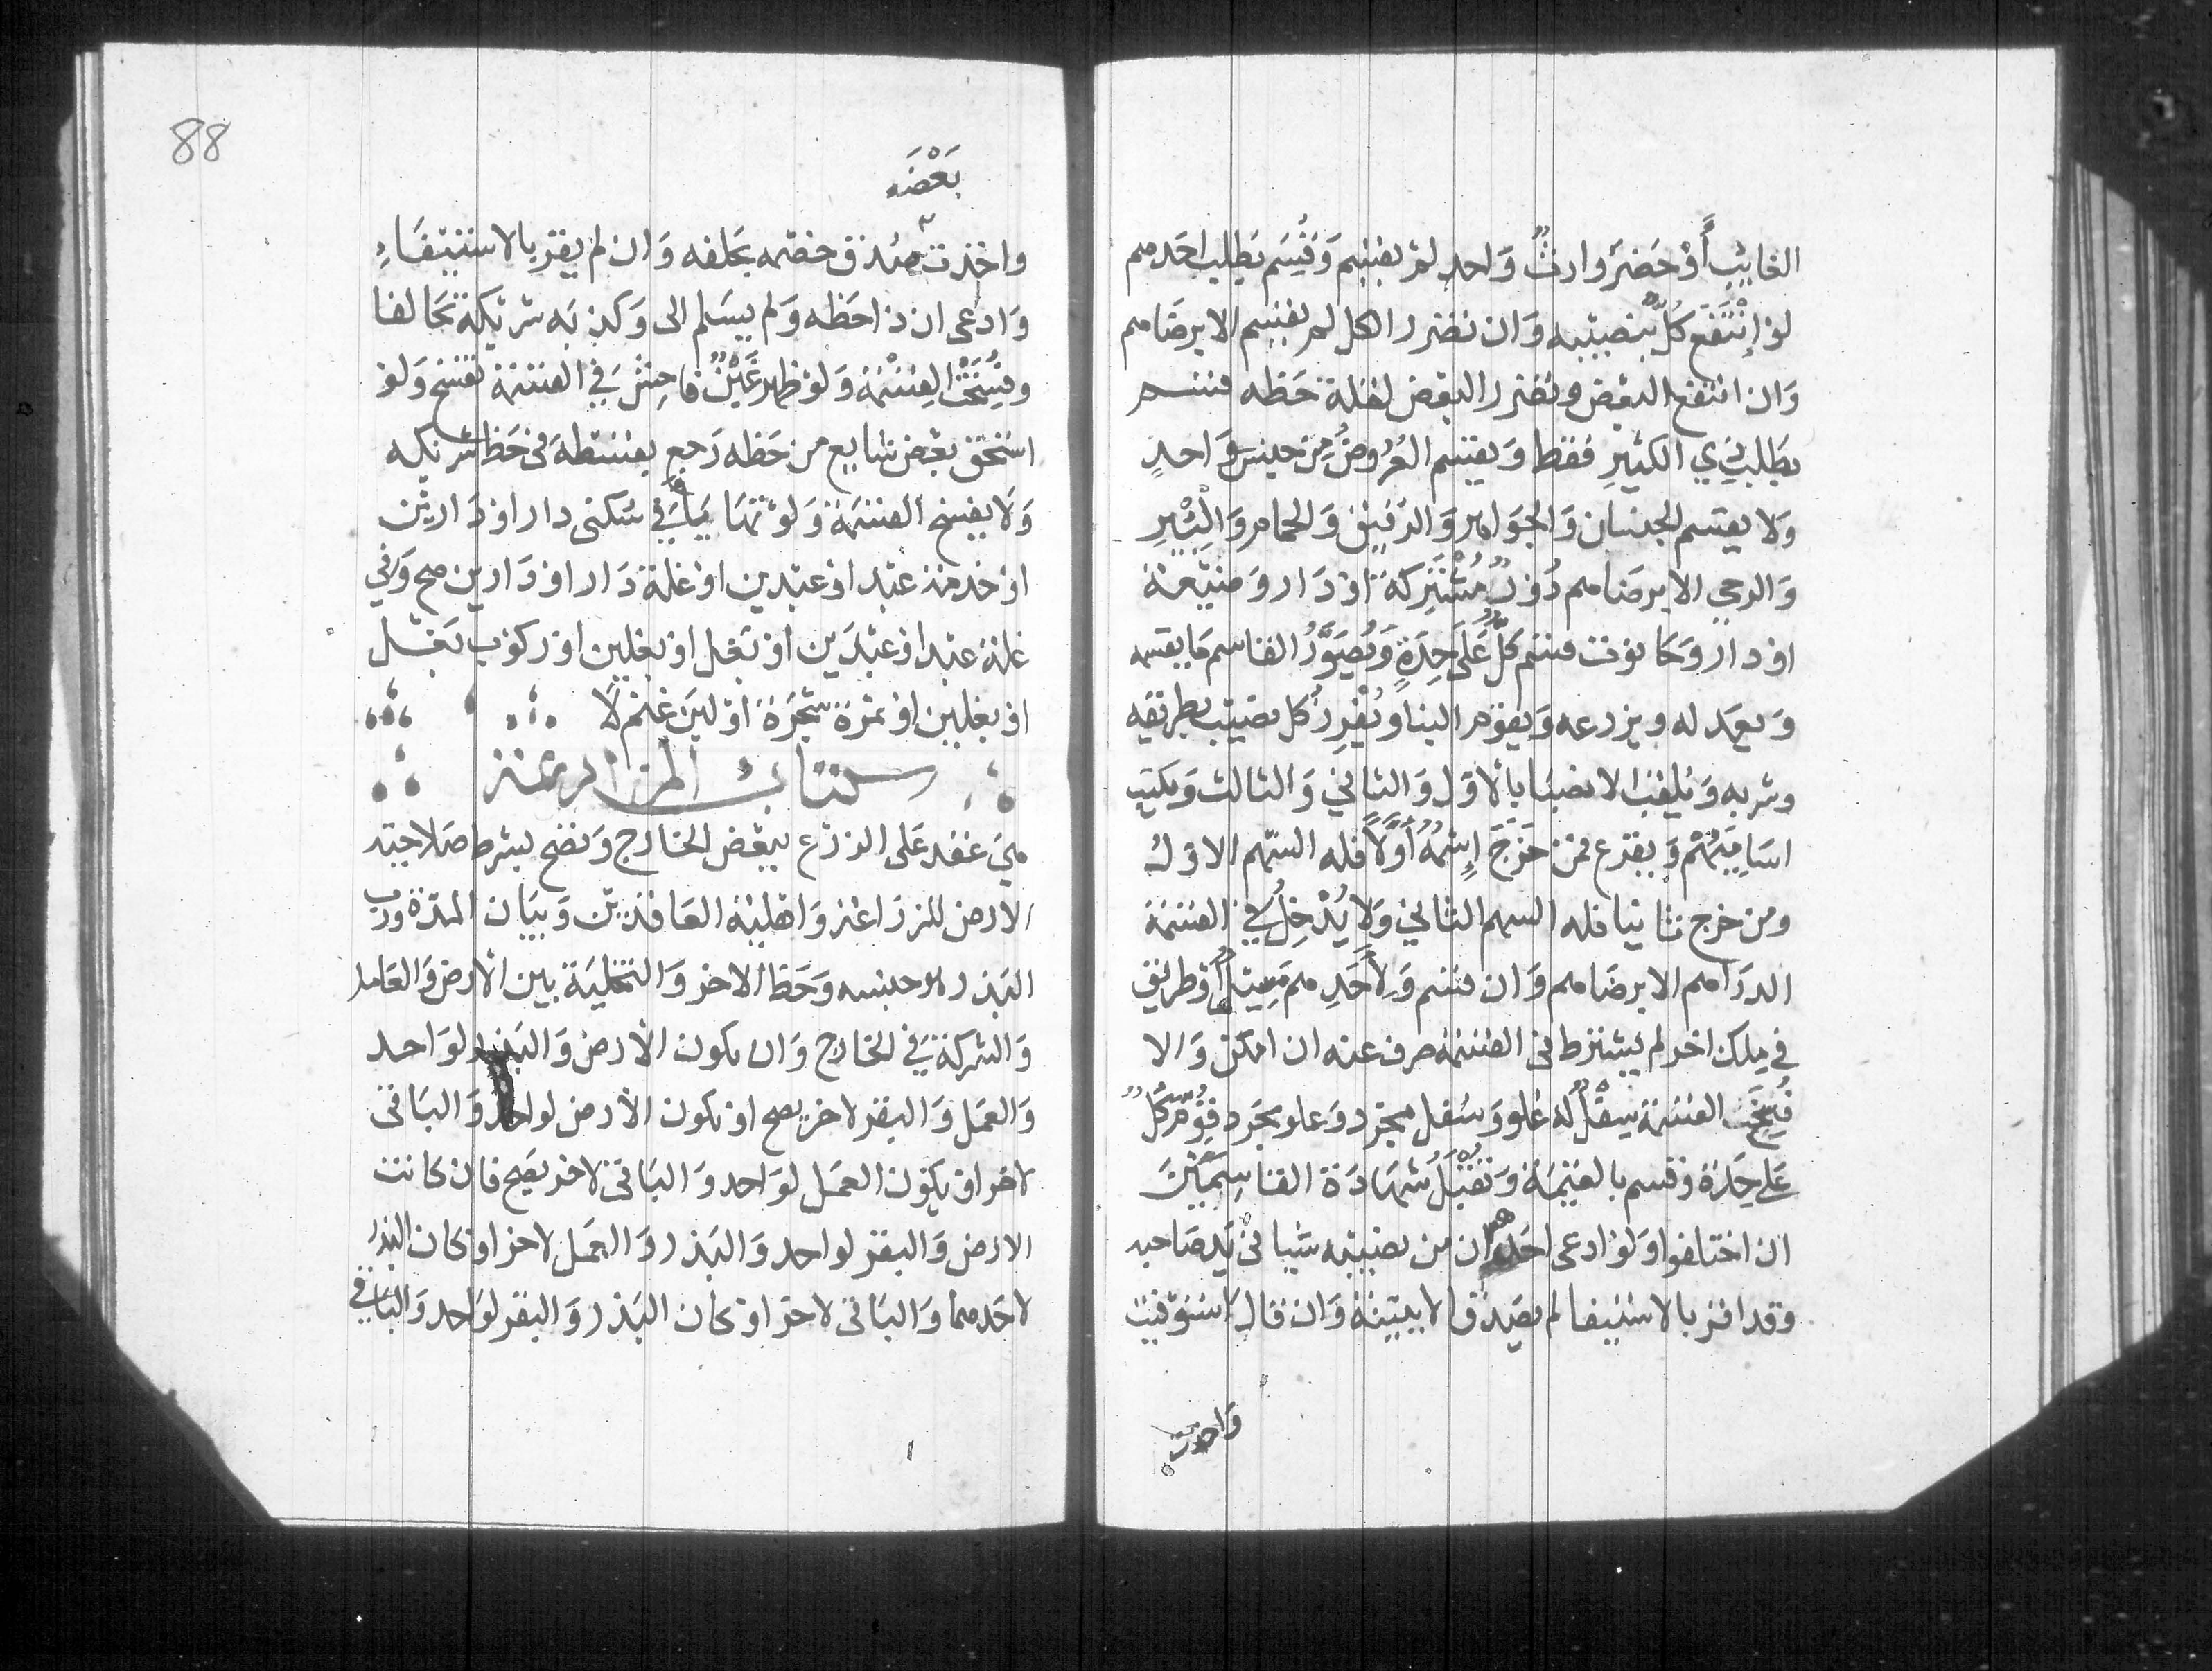 الغايب أَوْ حَضَرَ وارثٌ وَاحد لمْ يقسم وَقُسِم بطلب احَدهم
لوْ إنْتَفَع كُلٌّ بنصيبه وَان تضرر الكل لم يقسم الا برضاهم
وَان انتفع البعض وتضرر البعض لقلة حَظه قسم
بطَلب ذِي الكثيرِ فقط وَيقسم العُرُوضُ مِن جنس وَاحدٍ
وَلا يقسم الجنسان وَالجوَاهر وَالرقيق وَالحمام وَالبِئْرِ
وَالرحى الا برضاهم دُورٌ مُشْتَرِكَة اوْ دَار وَضيْعة
اوْ دار وَحَانوْت قسم كُلٌّ عَلَى حِدَةٍ وَيُصَوِّرُ القاسم مَا يقسمه
وَيعَدله ويزرعه وَيقوّم البنا وَيُفْرِزُ كل نصيب بطريقه
وشربه وَيلقب الانصبَا بالاوّل وَالثاني وَالثالث وَيكتب
اسَاميَهُمْ وَيقرع فمن خَرَجَ إِسْمُهُ أَوَّلًا فله السّهم الاوّل
ومن خرج ثانيا فله السهم الثاني وَلا يُدْخِلُ في القسْمَة
الدرَاهم الا برضَاهم وَان قسم وَلأحَدِهم مَسِيل أوْ طريق
في مِلك اخر لم يشترط في القسْمَة صرف عنه ان امكن وَالا
فُسِخَت القسْمَة سِفْلٌ له عُلو وَسُفل مجرّد وَعلو مجَرد قُوّمَ كُلٌّ
عَلى حِدَة وَقسم بالقِيْمَة وَتُقْبَلُ شَهَادَة القاسِمَيْنِ
ان اختلفوا وَلوْ ادعى احَدهم ان من نصيبه شيا في يَد صَاحبه
وقد اقرّ بالاستيفا لم يصَدق الا ببيّنة وَان قال استوْفيت
وَاخذت
بَعْضَه
واخذت صُدق خصْمه بحَلفه وَان لم يقرّ بالاستيفَاءِ
وَادعى ان ذا حَظه وَلم يسَلم الى وَكذبَه شريْكه تَحَالفا
وفُسِخَتْ القِسْمَة وَلوْ ظهر غَبْنٌ فاحِش في القسْمَة تفسخ وَلوْ
استحق بعْض شايع من حَظه رَجع بقسْطه في حَظ شريكه
وَلَا يفسخ القسْمَة وَلوْ تهَايَيَا في سُكنى دار اوْ دَاريْن
اوْ خدمة عبْد اوْ عبْدين اوْ غلة دَار اوْ دَارين صح وَفي
غلة عبْد اوْ عبْدَين اوْ بَغل اوْ بغلين اوْ ركوب بَغْل
اوْ بغلين اوْ ثمرَة شجَرَة اوْ لبَن غنم لَا
كتاب المزارعة
هيَ عَقد عَلى الزرْع ببعْض الخَارج وَتصح بشرط صَلاحيّة
الارض للزرَاعة وَاهْليّة العَاقديْن وَبيَان المدّة ورب
البَذر وجنسه وَحَظ الاخر وَالتخليَة بين الأرض وَالعَامل
وَالشركة في الخارج وَان يكون الأرض وَالبَذر لوَاحد
وَالعمَل وَالبقر لاخر يصح اوْ تكون الأرض لواحد وَالبَاقى
لاخر اوْ يكون العمَل لوَاحد وَالبَاقى لاخر يصح فان كانت
الارض وَالبقر لواحد وَالبَذر وَالعمَل لاخر اوْ كان البَذر
لاحَدهما وَالبَاقى لاخر اوْ كان البَذر وَالبقر لوَاحد وَالبَاقى
88